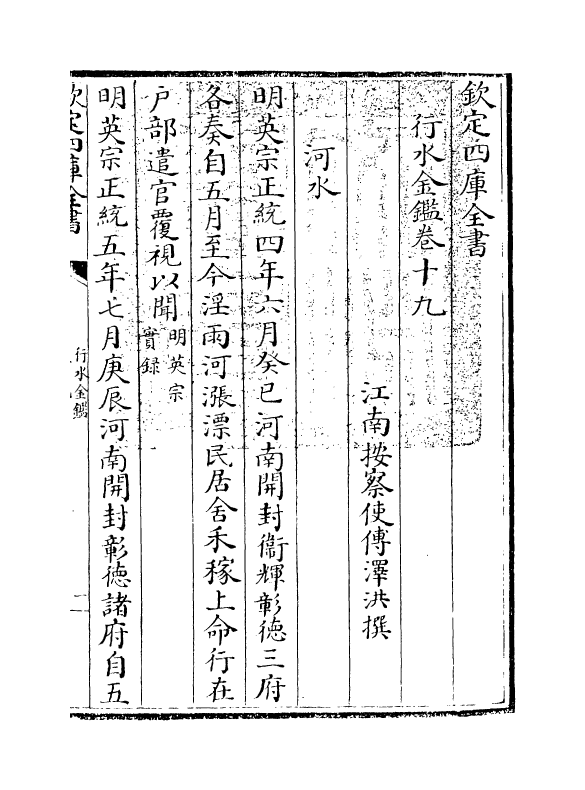 欽定四庫全書
行水金鑑卷十九
江南按察使傅澤洪撰
河水
明英宗正統四年六月癸巳河南開封衞輝彰德三府
各奏自五月至今淫雨河漲漂民居舍禾稼上命行在
户部遣官覆視以聞明英宗
實録
明英宗正統五年七月庚辰河南開封彰德諸府自五
欽定四庫全書
行水金鑑